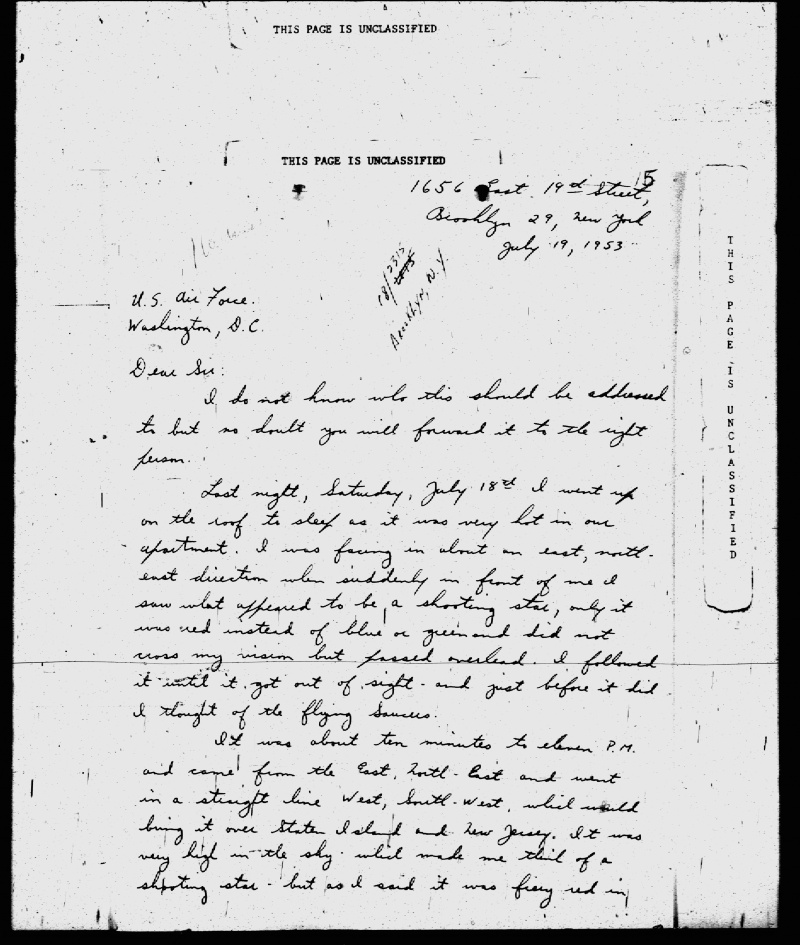 THIS PAGE IS UNCLASSIFIED
THIS PAGE IS UNCLASSIFIED
5
1656 East 19th Street,
Brooklyn 29, New York
July 19, 1953
18/2315
Brooklyn, N.Y.
U.S. Air Force.
Washington, D.C.
Dear Sir:
I do not know who this should be addressed
to but no doubt you will forward it to the right
person.
Last night, Saturday, July 18th I went up
on the roof to sleep as it was very hot in our
apartment. I was facing in about an east, north-
east direction when suddenly in front of me I
saw what appeared to be a shooting star, only it
was red instead of blue or green and did not
cross my vision but passed overhead. I followed
it until it got out of sight - and just before it did
I thought of the flying saucers.
It was about ten minutes to eleven P.M.
and came from the East, North-East and went
in a straight line West, South-West, which would
bring it over Staten Island and New Jersey. It was
very high in the sky which made me think of a
shooting star - but as I said it was fiery red in
THIS PAGE IS UNCLASSIFIED